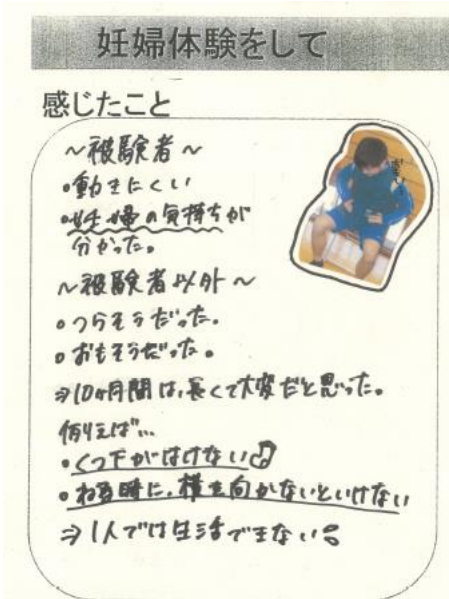 妊婦体験をして
感じたこと
～被験者～
・動きにくい
・妊婦の気持ちが
分かった。
～被験者以外～
・つらそうだった。
・おもそうだった。
⇒10ヶ月間は、長くて大変だと思った。
例えば…
・くつ下がはけない
・ねる時に、横を向かないといけない
⇒1人では生活できない